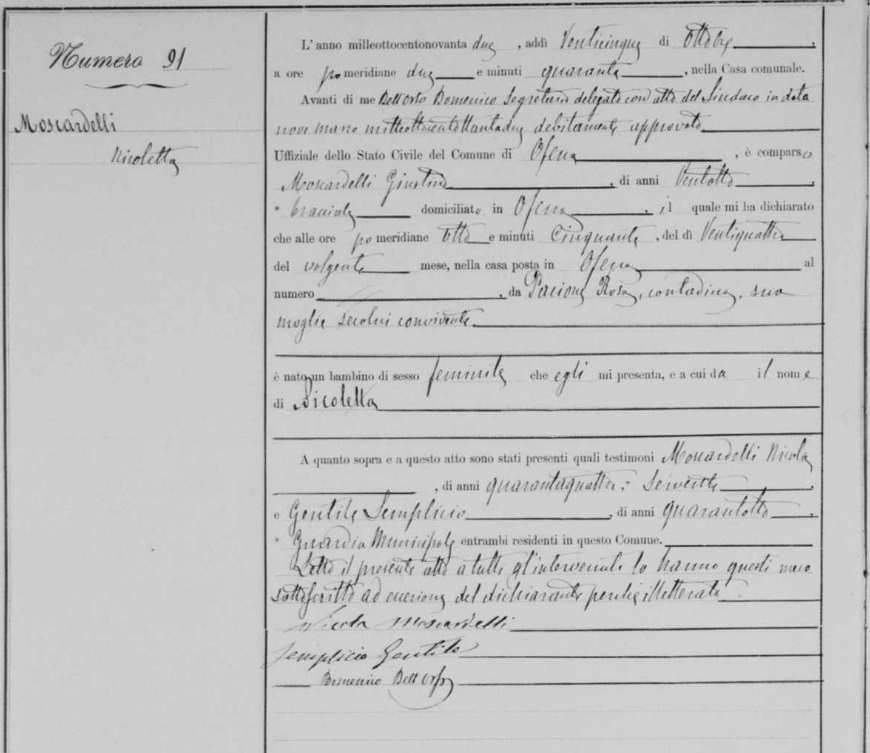 Numero 91
Moscardelli
Nicoletta
L'anno milleottocentonovanta due, addì Venticinque di Ottobre,
a ore pomeridiane due e minuti quaranta, nella Casa comunale.
Avanti di me Dell'Orso Domenico Segretario delegato con atto del Sindaco in data
nove marzo milleottocentottantadue debitamente approvato
Uffiziale dello Stato Civile del Comune di Ofena, è comparso
Moscardelli Giustino, di anni Ventotto,
bracciale domiciliato in Ofena, il quale mi ha dichiarato
che alle ore pomeridiane otto e minuti cinquanta, del dì Ventiquattro
del volgente mese, nella casa posta in Ofena al
numero, da Pacione Rosa, contadina, sua
moglie secolui convivente
è nato un bambino di sesso feminile che egli mi presenta, e a cui da il nome
di Nicoletta
A quanto sopra e a questo atto sono stati presenti quali testimoni Moscardelli Nicola
, di anni quarantaquattro, Serviente
e Gentile Semplicio, di anni quarantotto,
Guardia Municipale entrambi residenti in questo Comune.
Letto il presente atto a tutti gl'intervenuti lo hanno questi meco
sottoscritto ad eccezione del dichiarante perchè illetterato.
Nicola Moscardelli
Semplicio Gentile
Domenico Dell'Orso